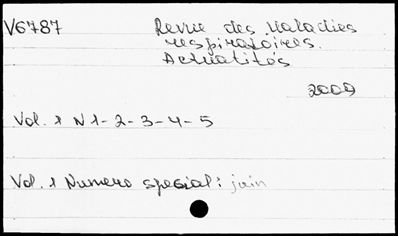 V6787
Revue des Maladies
respiratoires.
Actualités
2009
Vol. 1 N 1-2-3-4-5
Vol. 1 Numero special: juin